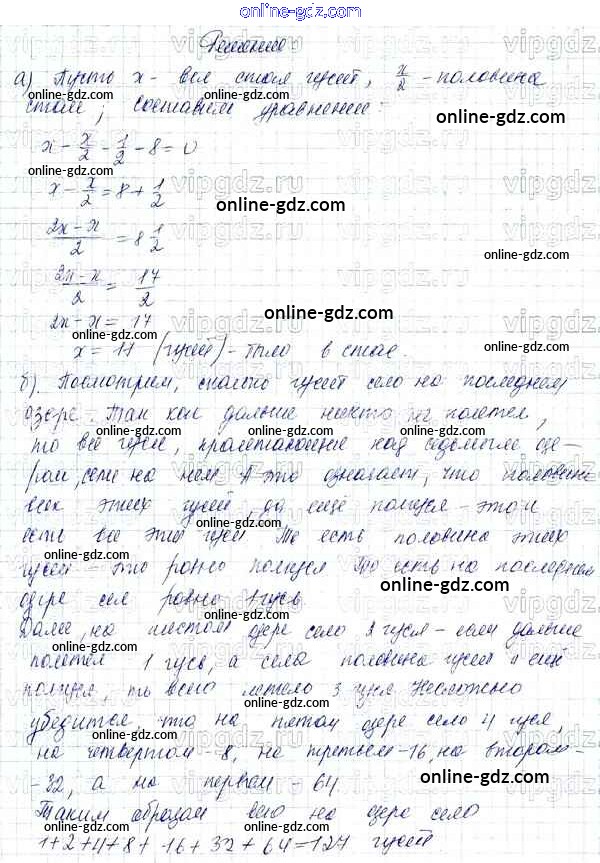 online-gdz.com
Решение
а) Пусть x - вся стая гусей, x/2 - половина
стаи; составим уравнение:
online-gdz.com
x - x/2 - 1/2 - 8 = 0
online-gdz.com
x - x/2 = 8 + 1/2
online-gdz.com
(2x - x)/2 = 8 1/2
online-gdz.com
(2x - x)/2 = 17/2
online-gdz.com
2x - x = 17
online-gdz.com
x = 17 (гусей) - было в стае.
б) Посмотрим, сколько гусей село на последнем
озере. Так как дальше никто не полетел,
online-gdz.com
то все гуси, пролетавшие над седьмым озе-
ром, сели на нем. А это означает, что половина
всех этих гусей, да ещё полгуся - это и
online-gdz.com
есть все эти гуси. То есть половина этих
online-gdz.com
гусей - это ровно полгуся. То есть на последнем
online-gdz.com
озере сел ровно 1 гусь.
online-gdz.com
Далее, на шестом озере село 2 гуся - если дальше
полетел 1 гусь, а села половина гусей и ещё
online-gdz.com
полгуся, то всего летело 3 гуся. Несложно
убедится, что на пятом озере село 4 гуся,
online-gdz.com
на четвертом - 8, на третьем - 16, на втором -
- 32, а на первом - 64.
online-gdz.com
Таким образом всего на озере село
online-gdz.com
1+2+4+8+16+32+64=127 гусей.
online-gdz.com